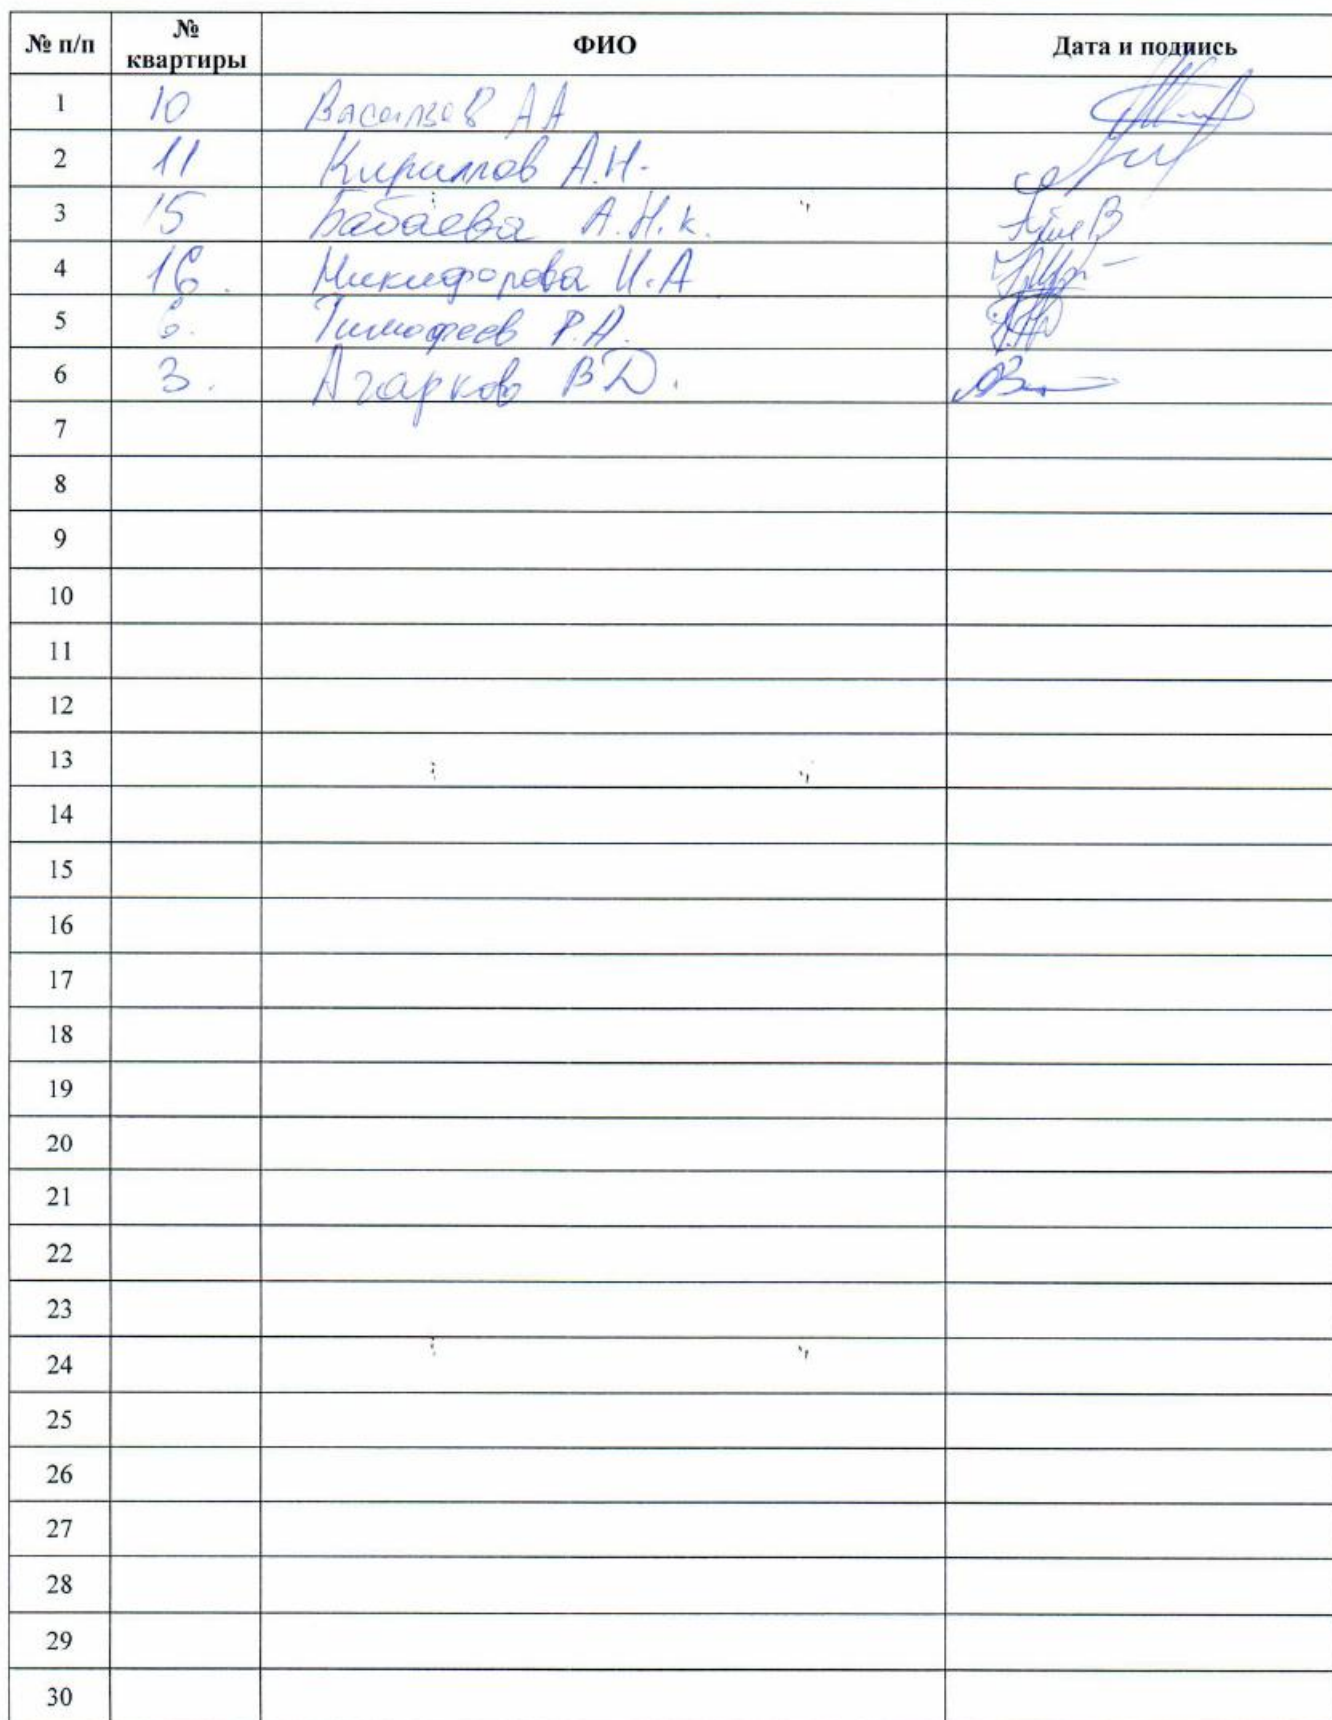 № п/п № квартиры ФИО Дата и подпись
1 10 Васильев АА
2 11 Кириллов А.Н.
3 15 Бабаева А.Н.к.
4 16. Никифорова И.А
5 6. Тимофеев Р.А.
6 3. Агарков ВД.
7
8
9
10
11
12
13
14
15
16
17
18
19
20
21
22
23
24
25
26
27
28
29
30